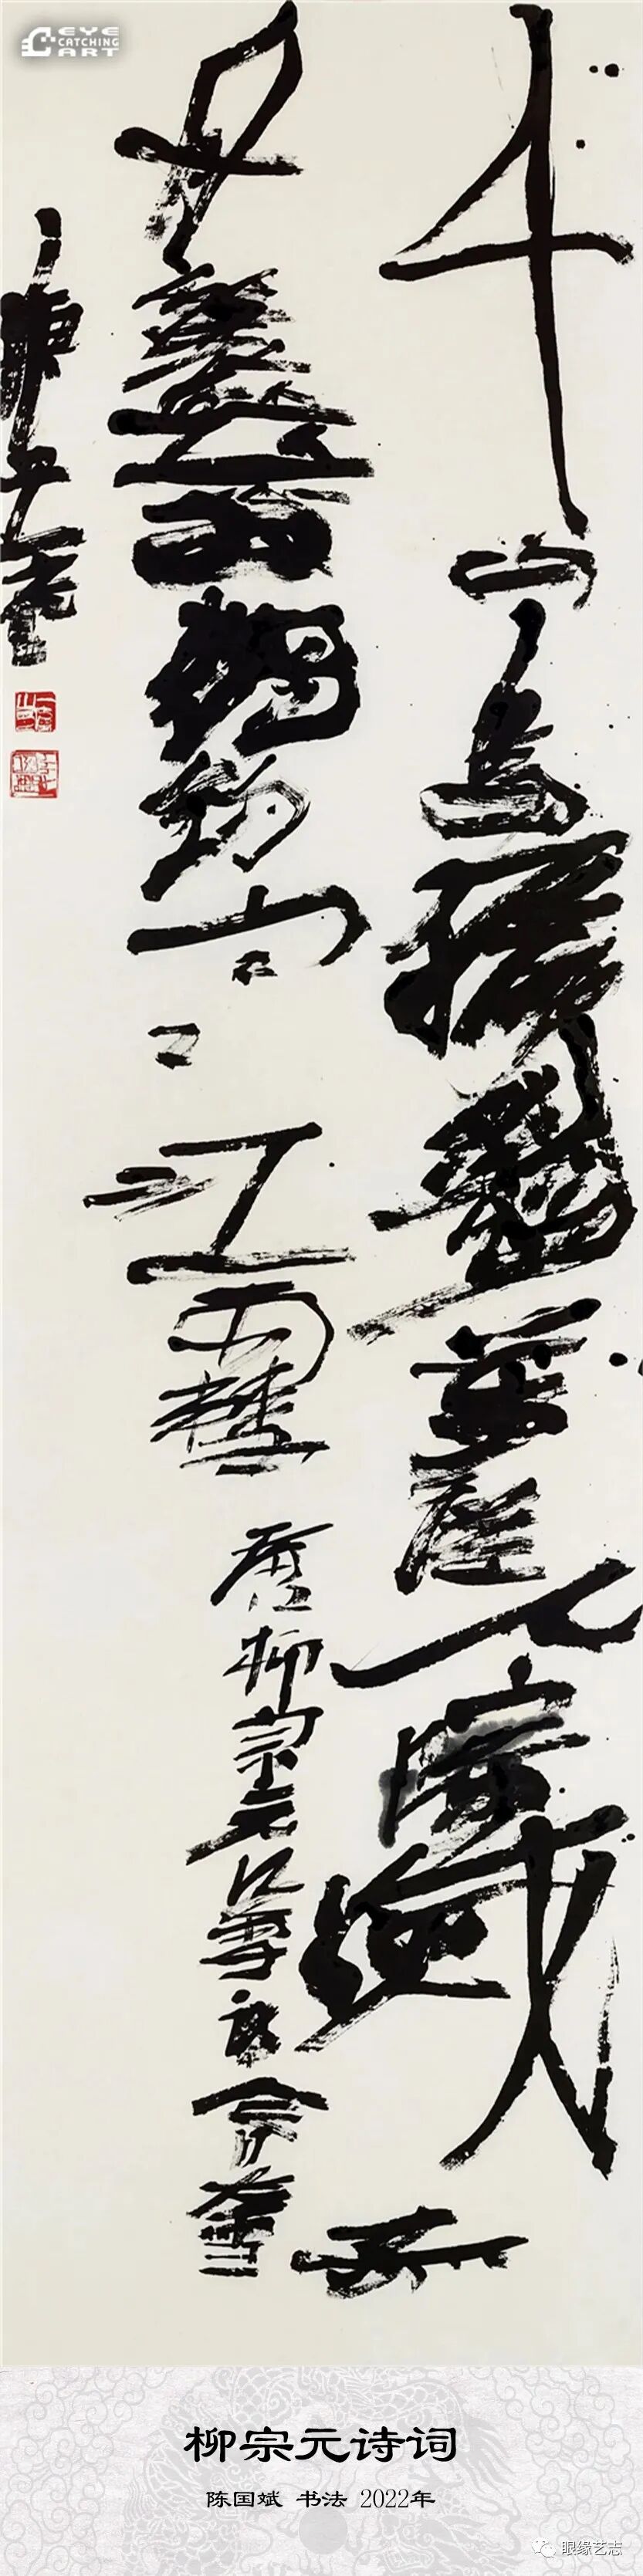 EYE
CATCHING
ART
千山鳥飛絕萬徑人蹤滅孤
舟蓑笠翁獨釣寒江雪 唐柳宗元江雪
庚子
柳宗元诗词
陈国斌 书法 2022年
眼缘艺志